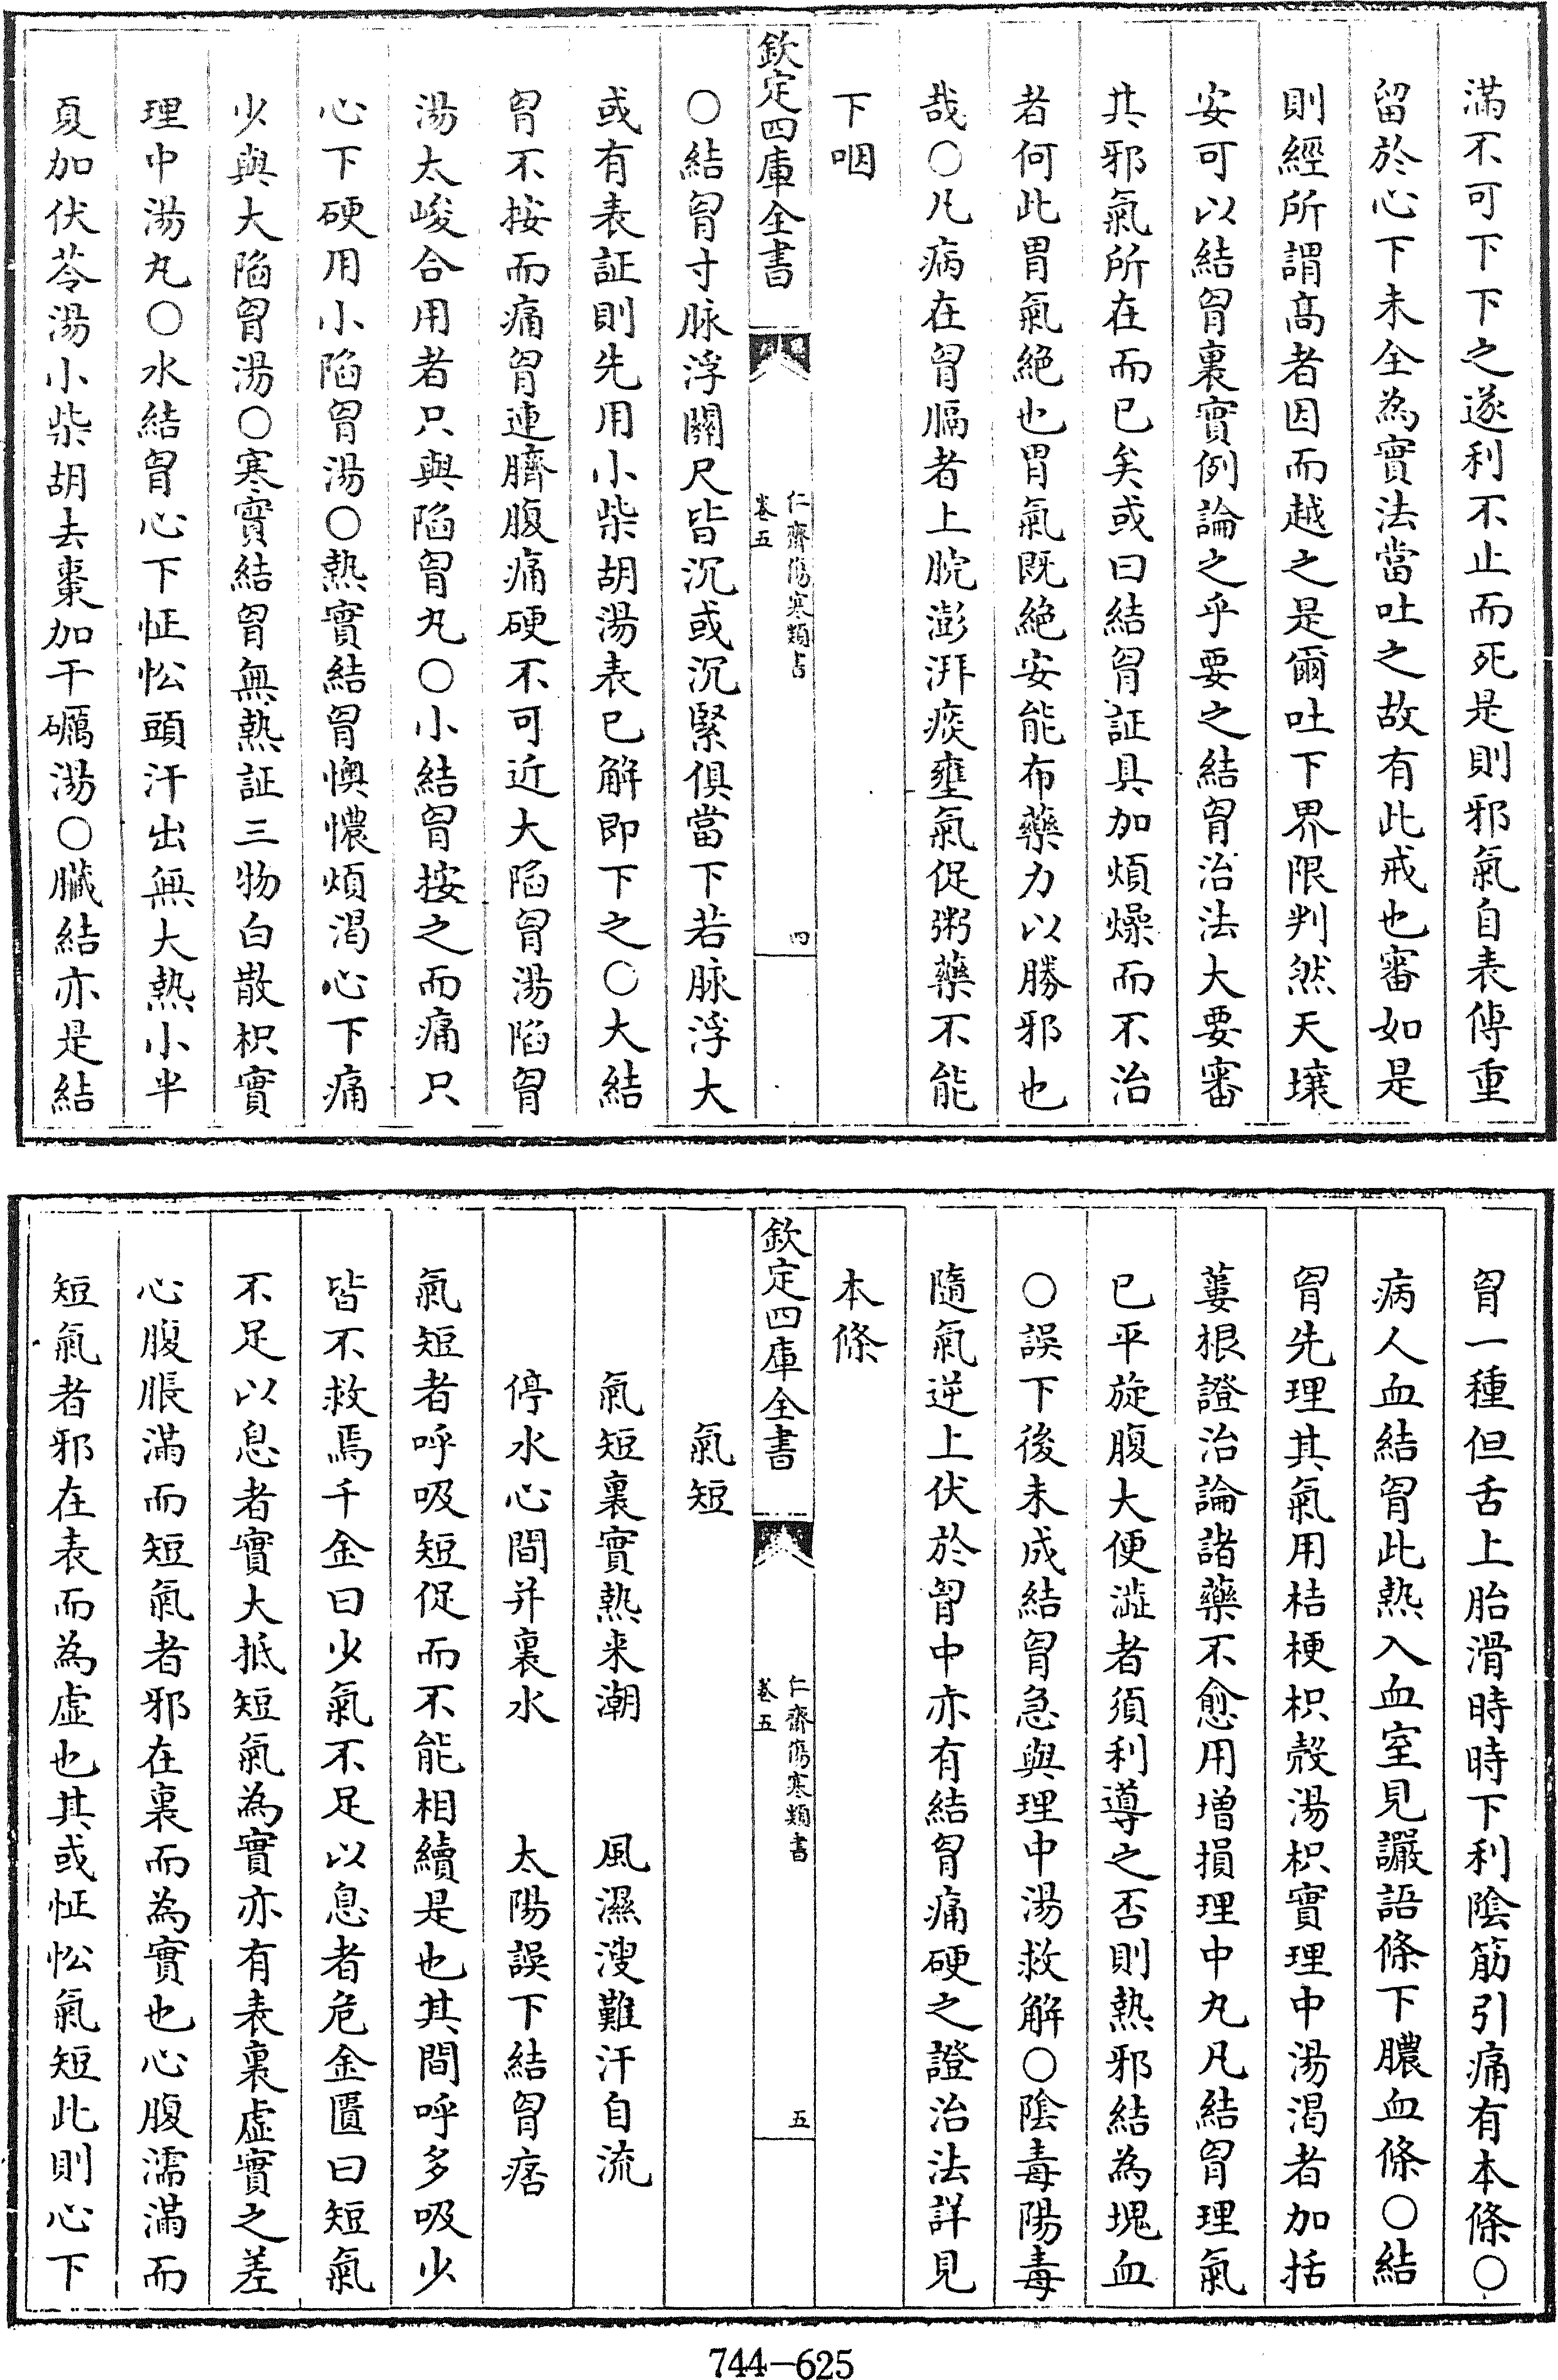 滿不可下下之遂利不止而死是則邪氣自表傳重
留於心下未全為實法當吐之故有此戒也審如是
則經所謂高者因而越之是爾吐下界限判然天壤
安可以結胷裏實例論之乎要之結胷治法大要審
其邪氣所在而已矣或曰結胷証具加煩燥而不治
者何此胃氣絶也胃氣既絶安能布藥力以勝邪也
哉○凡病在胷膈者上脘澎湃痰壅氣促粥藥不能
下咽
欽定四庫全書
仁齋傷寒類書
卷五
四
○結胷寸脉浮關尺皆沉或沉緊俱當下若脉浮大
或有表証則先用小柴胡湯表已解即下之○大結
胷不按而痛胷連臍腹痛硬不可近大陷胷湯陷胷
湯太峻合用者只與陷胷丸○小結胷按之而痛只
心下硬用小陷胷湯○熱實結胷懊憹煩渴心下痛
少與大陷胷湯○寒實結胷無熱証三物白散枳實
理中湯丸○水結胷心下怔忪頭汗出無大熱小半
夏加伏苓湯小柴胡去棗加干礪湯○臟結亦是結
胷一種但舌上胎滑時時下利陰筋引痛有本條○
病人血結胷此熱入血室見讝語條下膿血條○結
胷先理其氣用桔梗枳殻湯枳實理中湯渴者加括
蔞根證治論諸藥不愈用增損理中丸凡結胷理氣
已平旋腹大便澁者須利導之否則熱邪結為塊血
○誤下後未成結胷急與理中湯救解○陰毒陽毒
隨氣逆上伏於胷中亦有結胷痛硬之證治法詳見
本條
欽定四庫全書
仁齋傷寒類書
卷五
五
氣短
氣短裏實熱来潮　風濕溲難汗自流
停水心間并裏水　太陽誤下結胷痞
氣短者呼吸短促而不能相續是也其間呼多吸少
皆不救焉千金曰少氣不足以息者危金匱曰短氣
不足以息者實大抵短氣為實亦有表裏虛實之差
心腹脹滿而短氣者邪在裏而為實也心腹濡滿而
短氣者邪在表而為虛也其或怔忪氣短此則心下
744-625